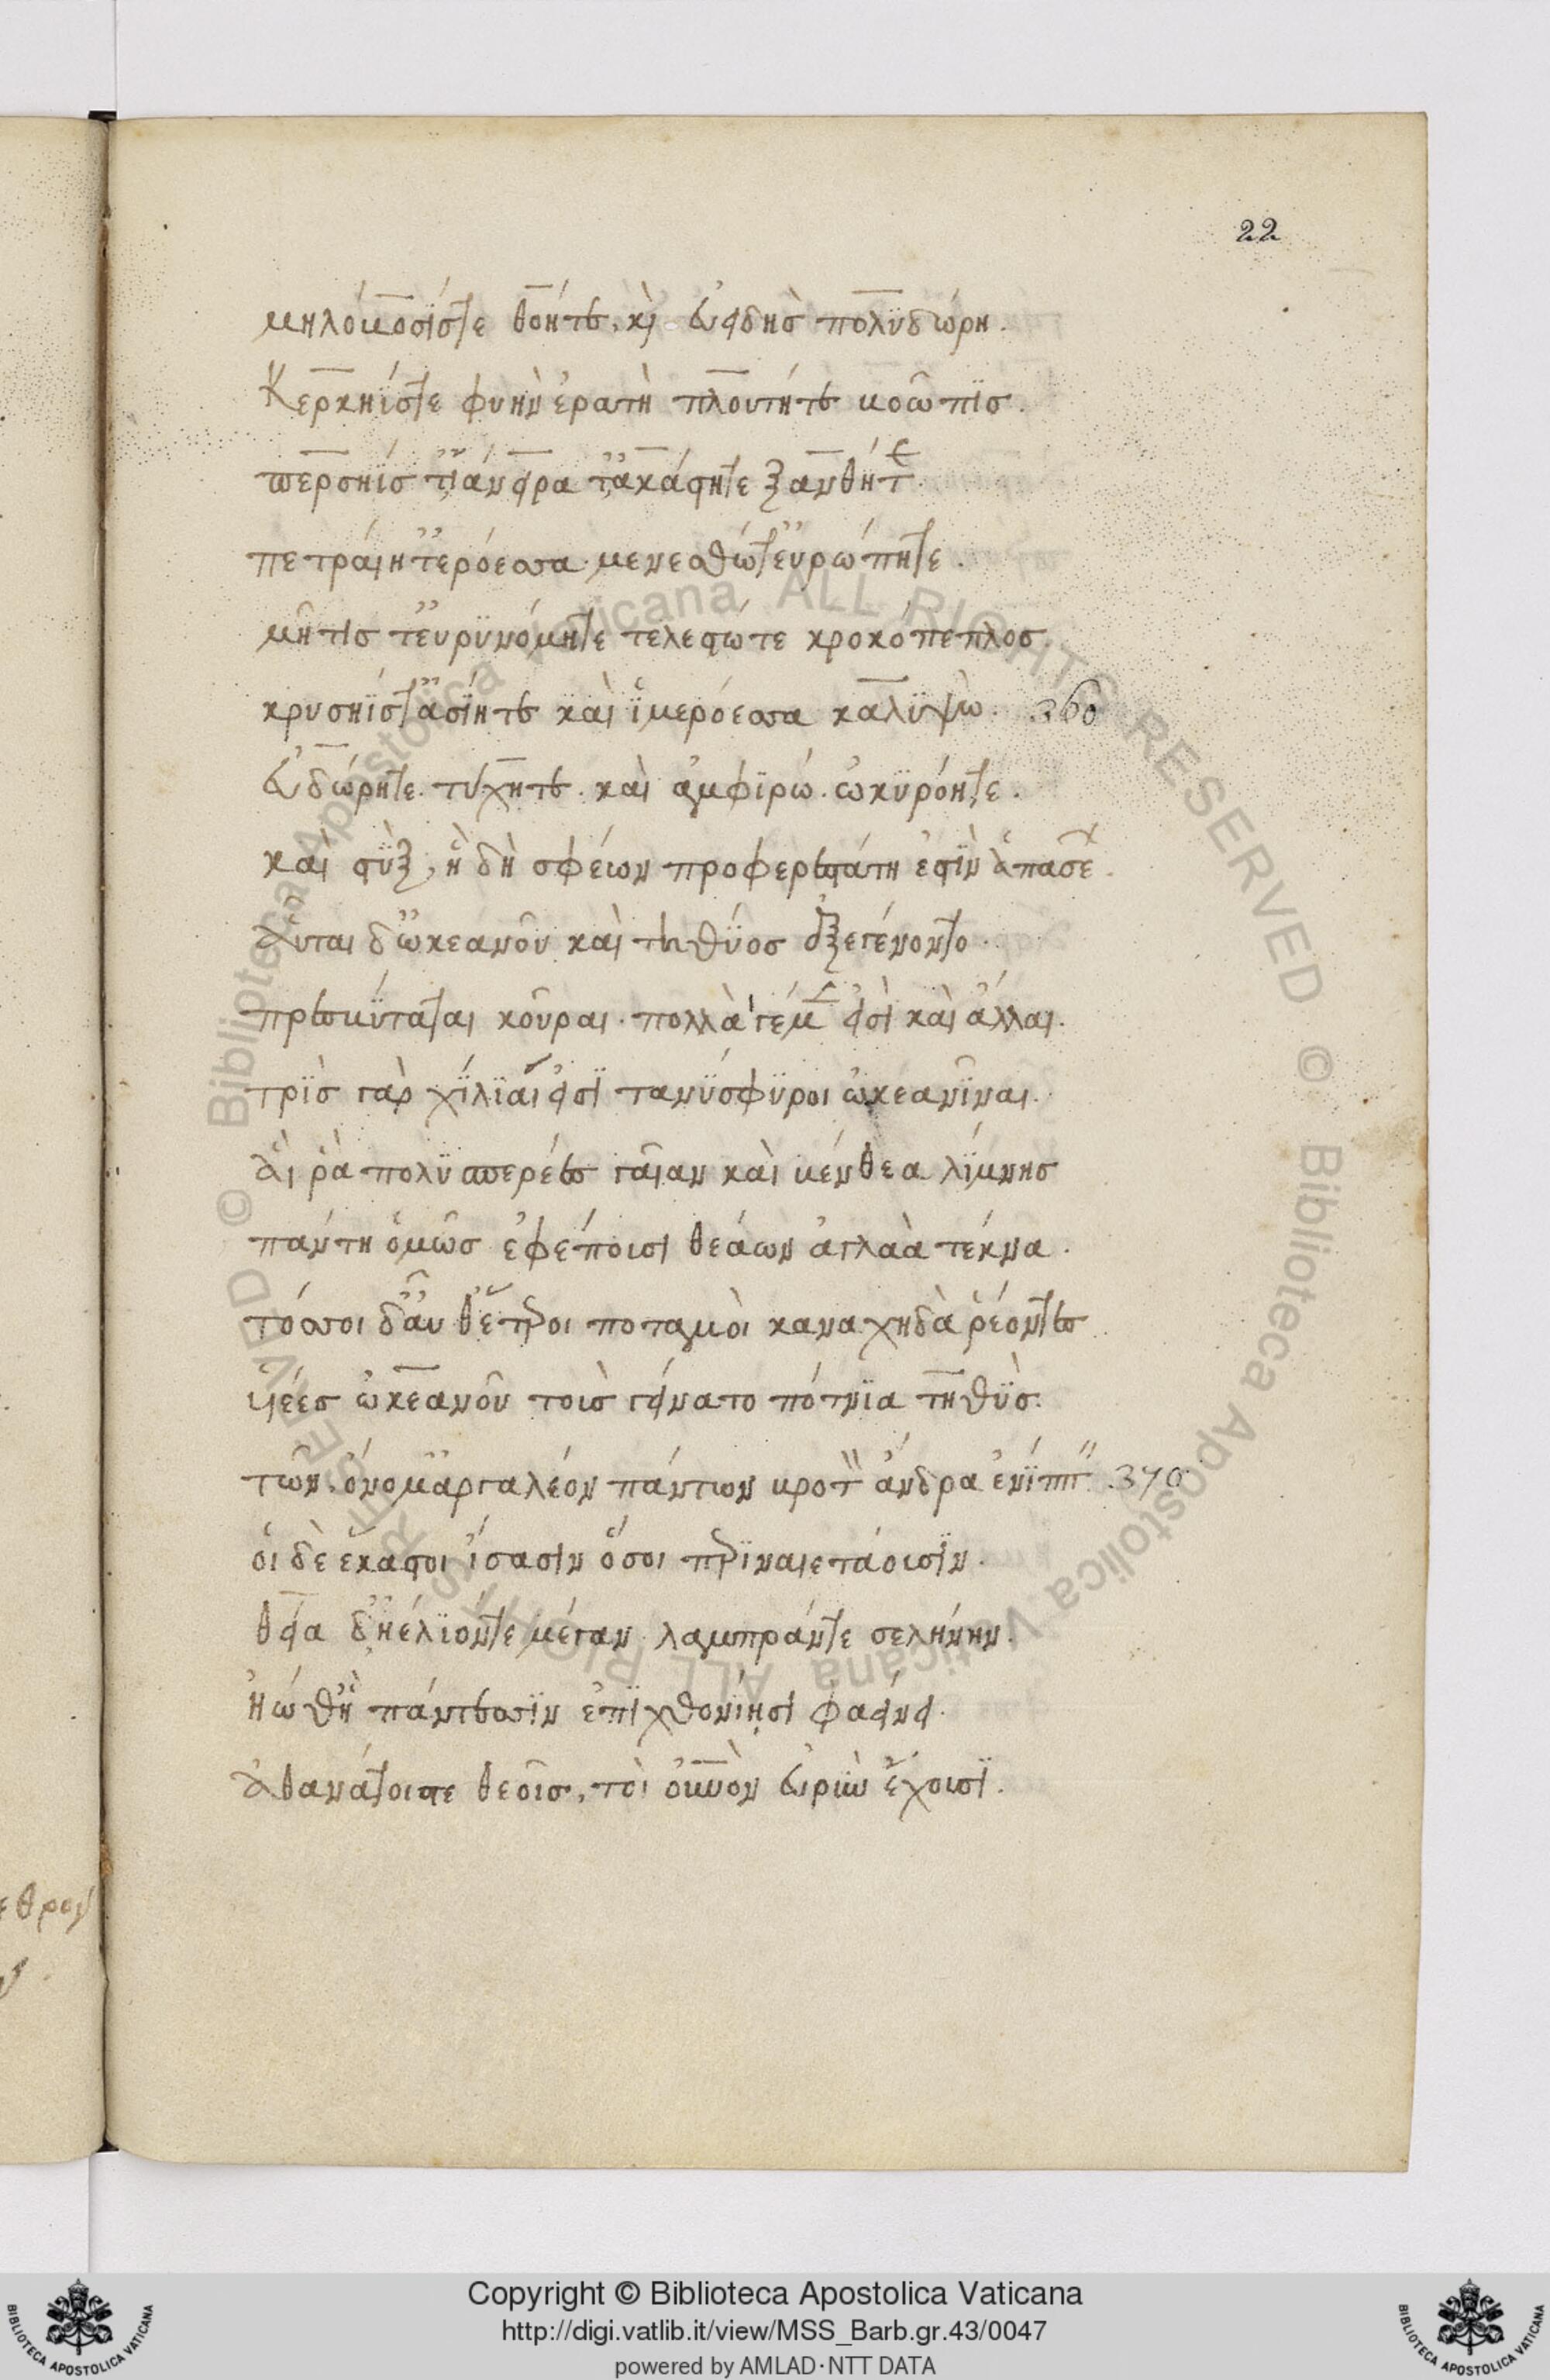 μηλόβοσίς τε θοή τε, καὶ εὐειδὴς πολυδώρη.
Κερκηΐς τε φυὴν ἐρατὴ πλουτή τε βοῶπις.
περσηΐς τ' ἰάνειρα τ' ἀκάστη τε ξανθή τε.
πετραίη τ' ἐρόεσσα· μενεσθώ τ' εὐρώπη τε.
μῆτις τ' εὐρυνόμη τε τελεστώ τε κροκόπεπλος.
χρυσηΐς τ' ἀσίη τε καὶ ἱμερόεσσα καλυψὼ. 360
εὐδώρη τε. τύχη τε. καὶ ἀμφιρώ. ὠκυρόη τε.
καὶ στὺξ, ἣ δὴ σφέων προφερεστάτη ἐστὶν ἁπασέων.
αὗται δ' ὠκεανοῦ καὶ τηθύος ἐξεγένοντο.
πρεσβύταται κοῦραι. πολλαί γε μέν εἰσὶ καὶ ἄλλαι.
τρὶς γὰρ χίλιαί εἰσὶ τανύσφυροι ὠκεανῖναι.
αἵ ῥα πολυσπερέες γαῖαν καὶ βένθεα λίμνης
πάντη ὁμῶς ἐφέπουσι θεάων ἀγλαὰ τέκνα.
τόσσοι δ' αὖθ' ἕτεροι ποταμοὶ καναχηδὰ ῥέοντες
υἱέες ὠκεανοῦ τοὺς γείνατο πότνια τηθύς.
τῶν ὄνομ' ἀργαλέον πάντων βροτὸν ἄνδρα ἐνίσπειν. 370
οἱ δὲ ἕκαστοι ἴσασιν ὅσοι περιναιετάουσιν.
θεία δ' ἠέλιόν τε μέγαν λαμπράν τε σελήνην.
ἠώ θ' ἣ πάντεσσιν ἐπιχθονίησι φαείνει.
ἀθανάτοις τε θεοῖς, τοὶ οὐρανὸν εὐρὺν ἔχουσι.
22
Copyright © Biblioteca Apostolica Vaticana
http://digi.vatlib.it/view/MSS_Barb.gr.43/0047
powered by AMLAD·NTT DATA